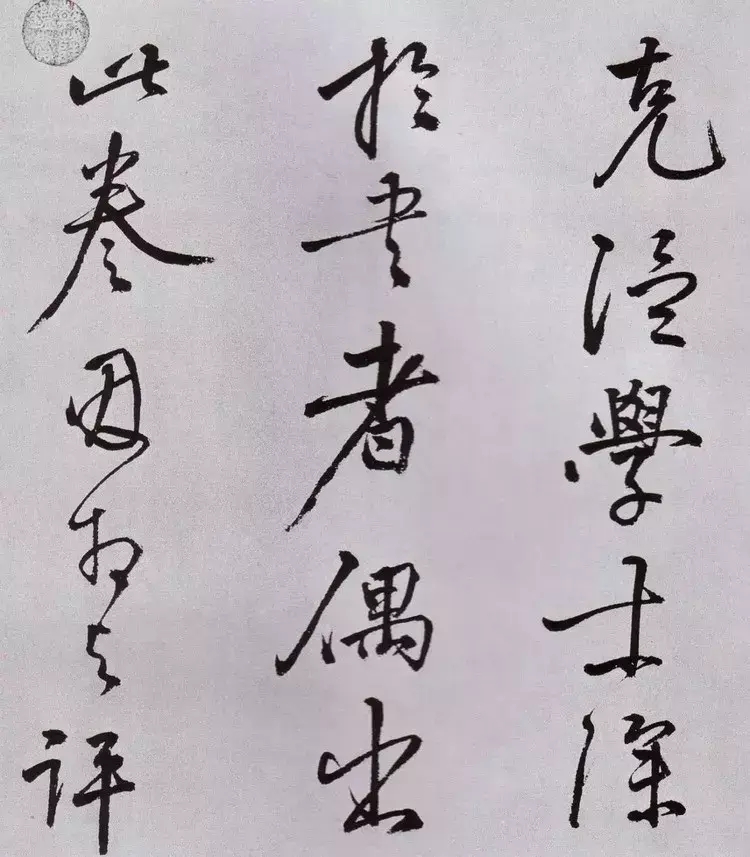 克温學士深
於書者偶出
此卷因相與評